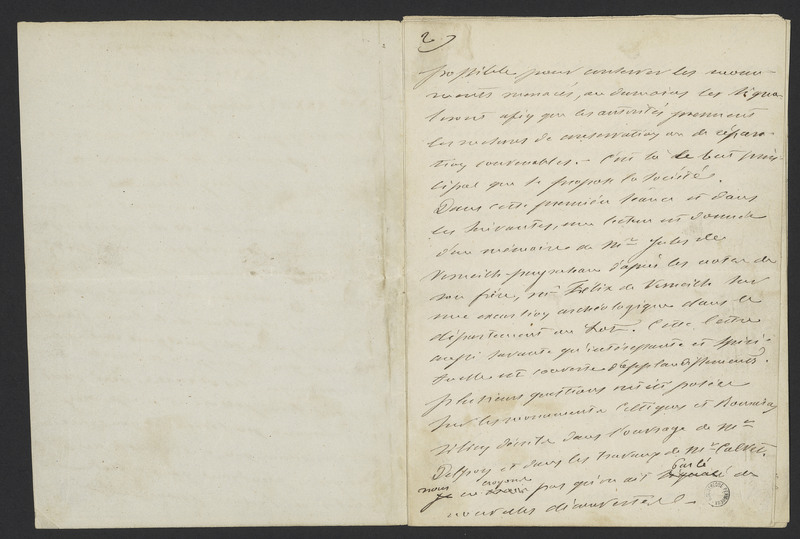 2)
possible pour conserver les monu-
ments menacés, au moins les signa-
leront afin que les autorités prennent
les mesures de conservation ou de répara-
tion convenables. - C'est là le but prin-
cipal que se propose la société.
Dans cette première séance et dans
les suivantes, une lecture est donnée
d'un mémoire de Mr Jules de
Verneilh-puyraseau d'après les notes de
son frère, Mr Félix de Verneilh sur
une excursion archéologique dans le
département du Lot. Cette lecture
aussi savante qu'intéressante et spiri-
tuelle est couverte d'applaudissements.
plusieurs questions ont été posées
sur les monuments Celtiques et Romains
décrits dans l'ouvrage de Mr
Delpon et dans les travaux de Mr Calvet.
nous ne croyons pas qu'on ait parlé de
nouvelles découvertes.